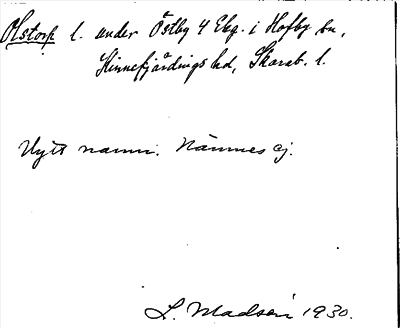 Olstorp l. under Östby 4 Ekg. i Hofby sn,
Kinnefjärdings hd, Skarab. l.
Nytt namn. Nämnes ej.
L. Madsén 1930.